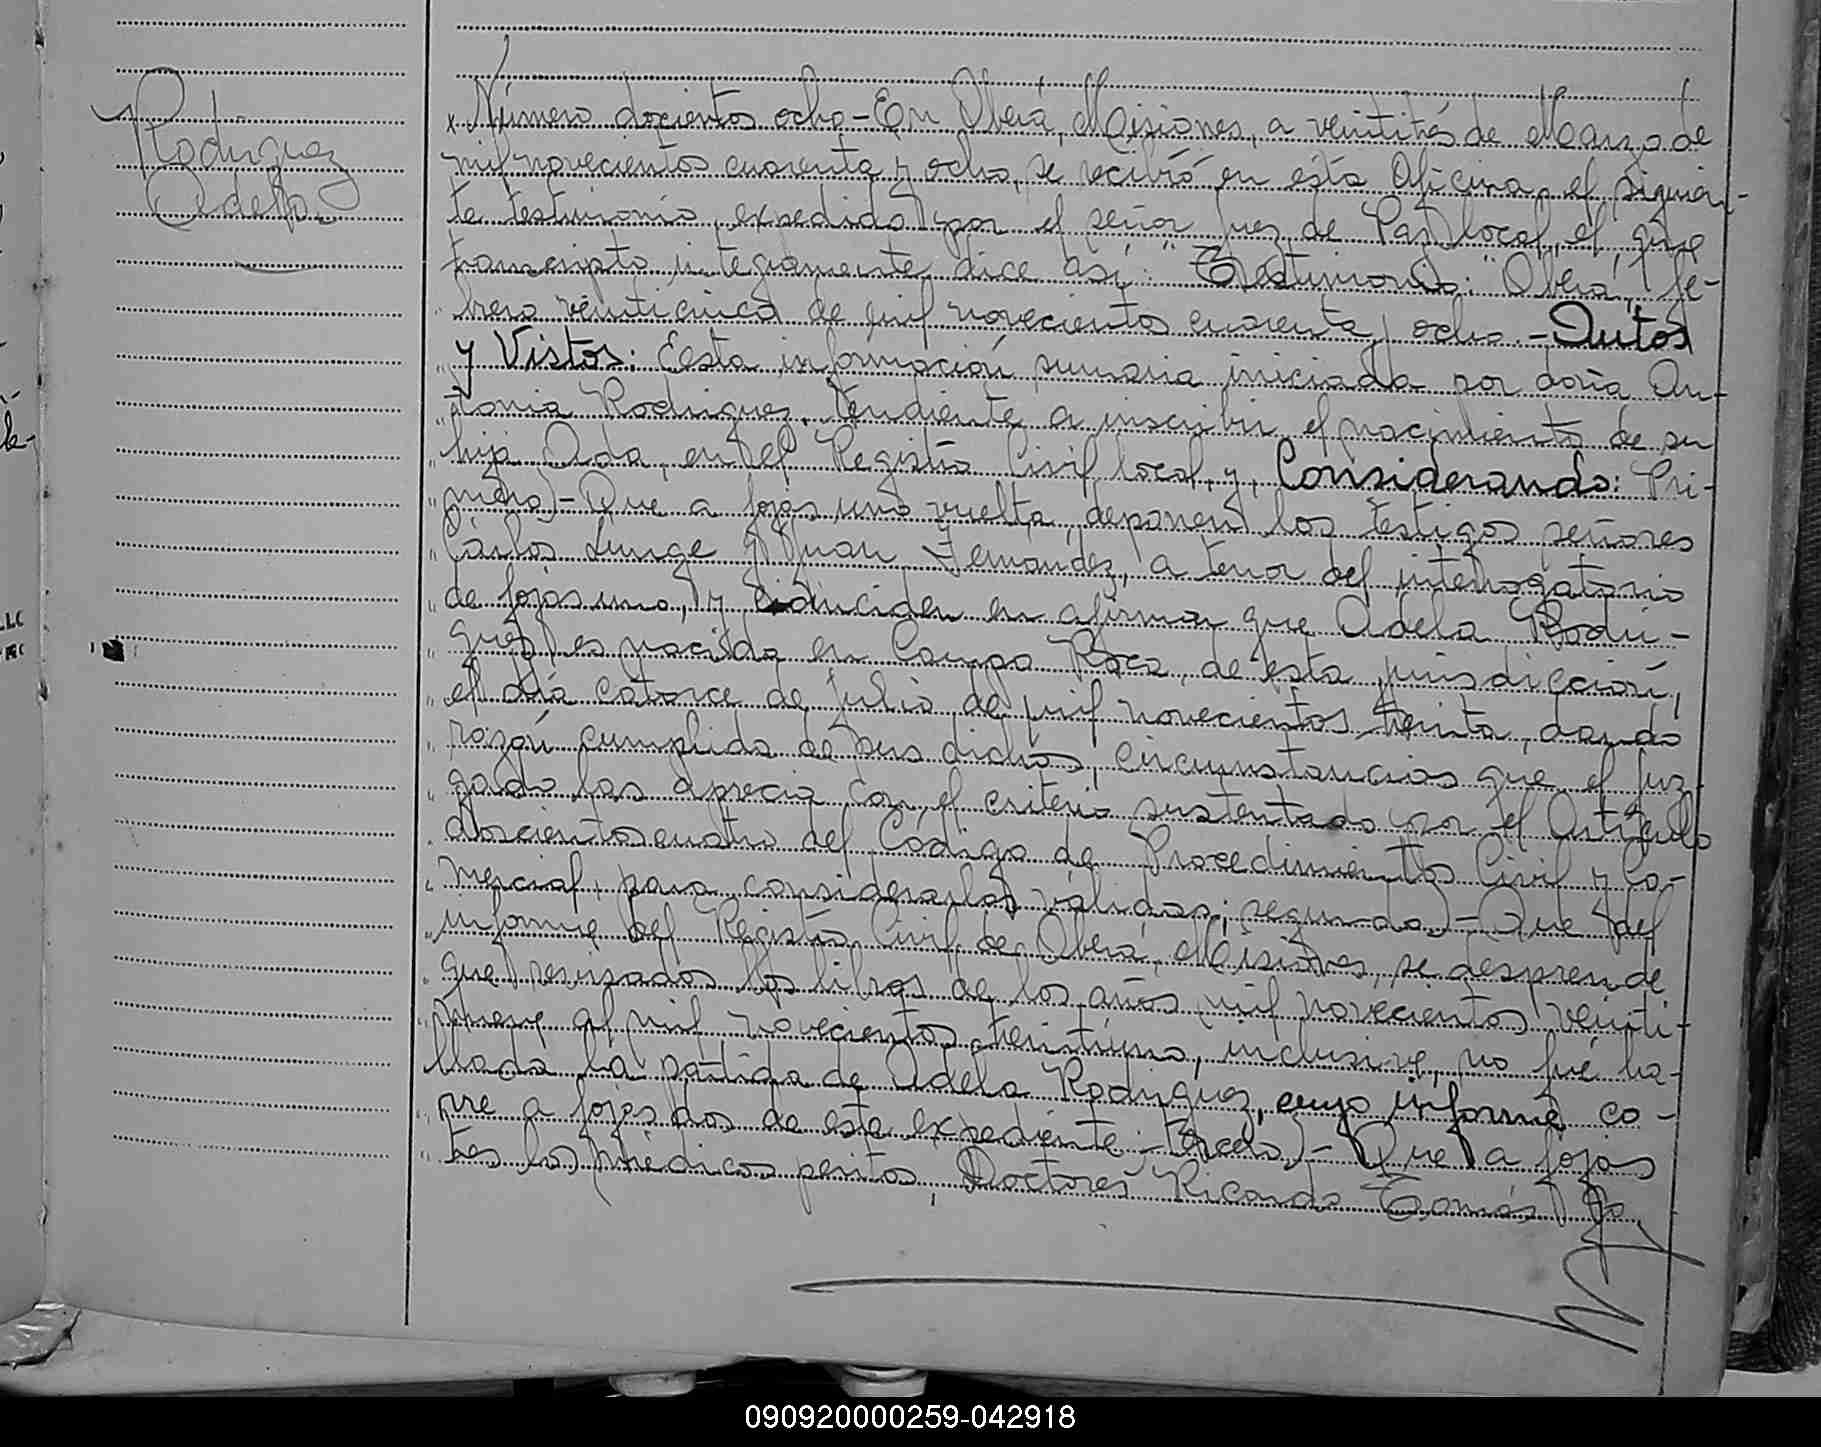 Rodriguez
Adela
Número doscientos ocho - En Oberá, Misiones, a veintitrés de Marzo de
mil novecientos cuarenta y ocho, se recibió en esta Oficina, el siguien-
te testimonio, expedido por el señor Juez de Paz local, el que
transcripto íntegramente, dice así: "Testimonio: "Oberá, fe-
brero veinticinco de mil novecientos cuarenta y ocho.- Autos
y Vistos: Eesta información sumaria iniciada por doña An-
tonia Rodriguez, tendiente a inscribir el nacimiento de su
hija Ada, en el Registro Civil local, y, Considerando: Pri-
mero)- Que a fojas uno vuelta, deponen los testigos señores
Carlos Lunge y Juan Fernández, a tenor del interrogatorio
de fojas uno, y coinciden en afirmar que Adela Rodri-
guez es nacida en Campo Roca, de esta jurisdicción,
el día catorce de julio de mil novecientos treinta, dando
razón cumplida de sus dichos, circunstancias que el Juz-
gado las aprecia con el criterio sustentado por el Artículo
doscientos cuatro del Código de Procedimientos Civil y Co-
mercial, para considerarlos válidas; segundo)- Que del
informe del Registro Civil de Oberá, Misiones, se desprende
que revisados los libros de los años mil novecientos veinti-
nueve al mil novecientos treintiuno, inclusive, no fué ha-
llada la partida de Adela Rodriguez, cuyo informe co-
rre a fojas dos de este expediente.- Tercero)- Que a fojas
tres los médicos peritos, Doctores Ricardo Tomás
090920000259-042918